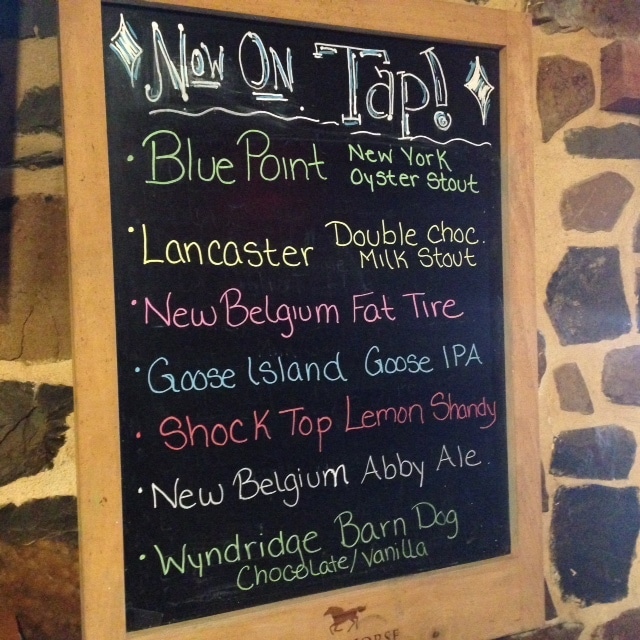 Now On Tap!
Blue Point New York
Oyster Stout
Lancaster Double Choc.
Milk Stout
New Belgium Fat Tire
Goose Island Goose IPA
Shock Top Lemon Shandy
New Belgium Abby Ale.
Wyndridge Barn Dog
Chocolate/Vanilla